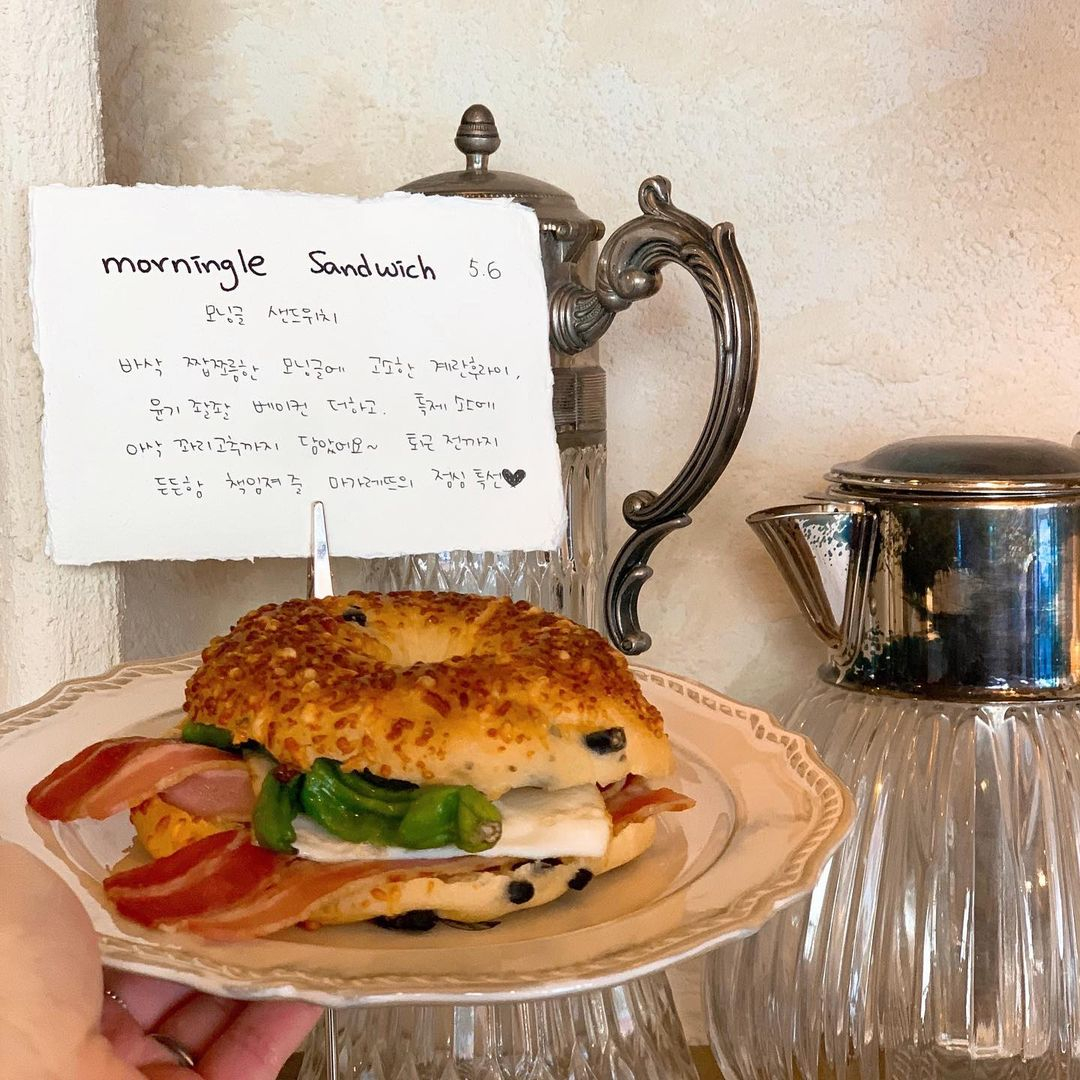 morningle Sandwich 5.6
모닝글 샌드위치
바삭 짭쪼름한 모닝글에 고소한 계란후라이,
윤기 좔좔 베이컨 더하고, 특제 소스에
아삭 꽈리고추까지 담았어요~ 퇴근 전까지
든든함 책임져 줄 마가레뜨의 점심 특선♥